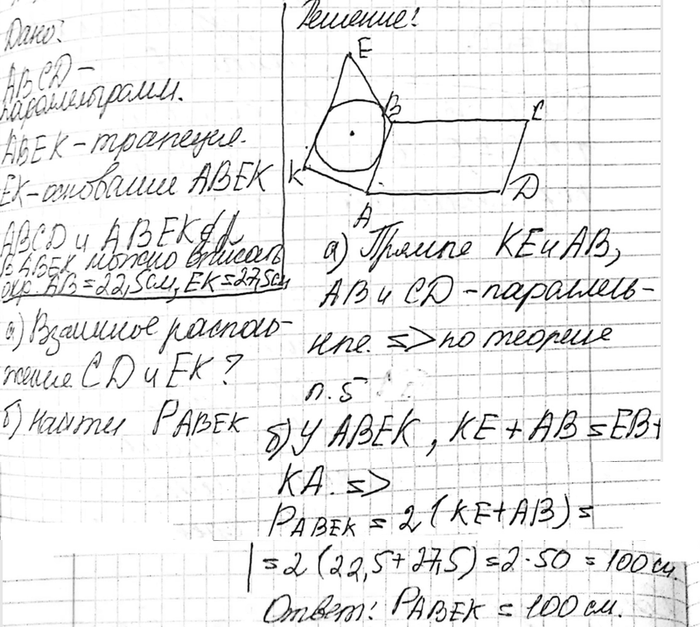 Дано:
ABCD –
параллелограмм.
ABEK – трапеция.
EK – основание ABEK
ABCD и ABEK ⊄ α
В ABEK можно вписать
окр. AB = 22,5 см, EK = 27,5 см
а) Взаимное располо-
жение CD и EK?
б) Найти P ABEK
Решение:
E
B
C
K
A
D
а) Прямые KE и AB,
AB и CD – параллель-
ные. => по теореме
п. 5
б) У ABEK, KE + AB = EB +
KA. =>
P ABEK = 2 (KE + AB) =
= 2 (22,5 + 27,5) = 2 · 50 = 100 см.
Ответ: P ABEK = 100 см.